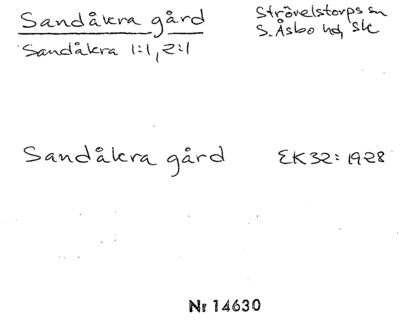 Sandåkra gård
Strövelstorps sn
Sandåkra 1:1, 2:1
S. Åsbo hd, Sk
Sandåkra gård
EK 32: 1928
Nr 14630